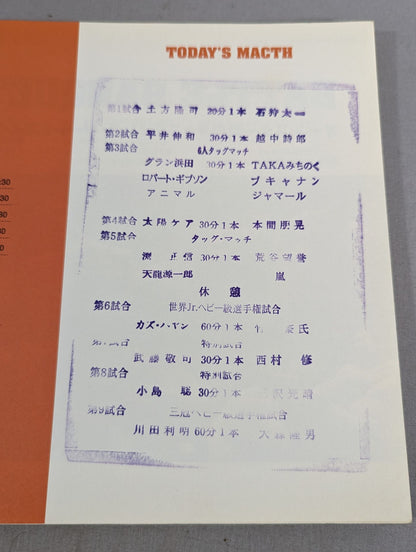 TODAY'S MACTH
第1試合 土方隆司 20分1本 石狩太一
第2試合 平井伸和 30分1本 越中詩郎
第3試合 6人タッグマッチ
グラン浜田 30分1本 TAKAみちのく
ロバート・ギブソン ブキャナン
アニマル ジャマール
第4試合 太陽ケア 30分1本 本間朋晃
第5試合 タッグ・マッチ
渕 正信 30分1本 荒谷望誉
天龍源一郎 嵐
休憩
第6試合 世界Jr.ヘビー級選手権試合
カズ・ハヤシ 60分1本
試合 特別試合
武藤敬司 30分1本 西村 修
第8試合 特別試合
小島 聡 30分1本
第9試合 三冠ヘビー級選手権試合
川田利明 60分1本 大森隆男
:30
30
30
0
30